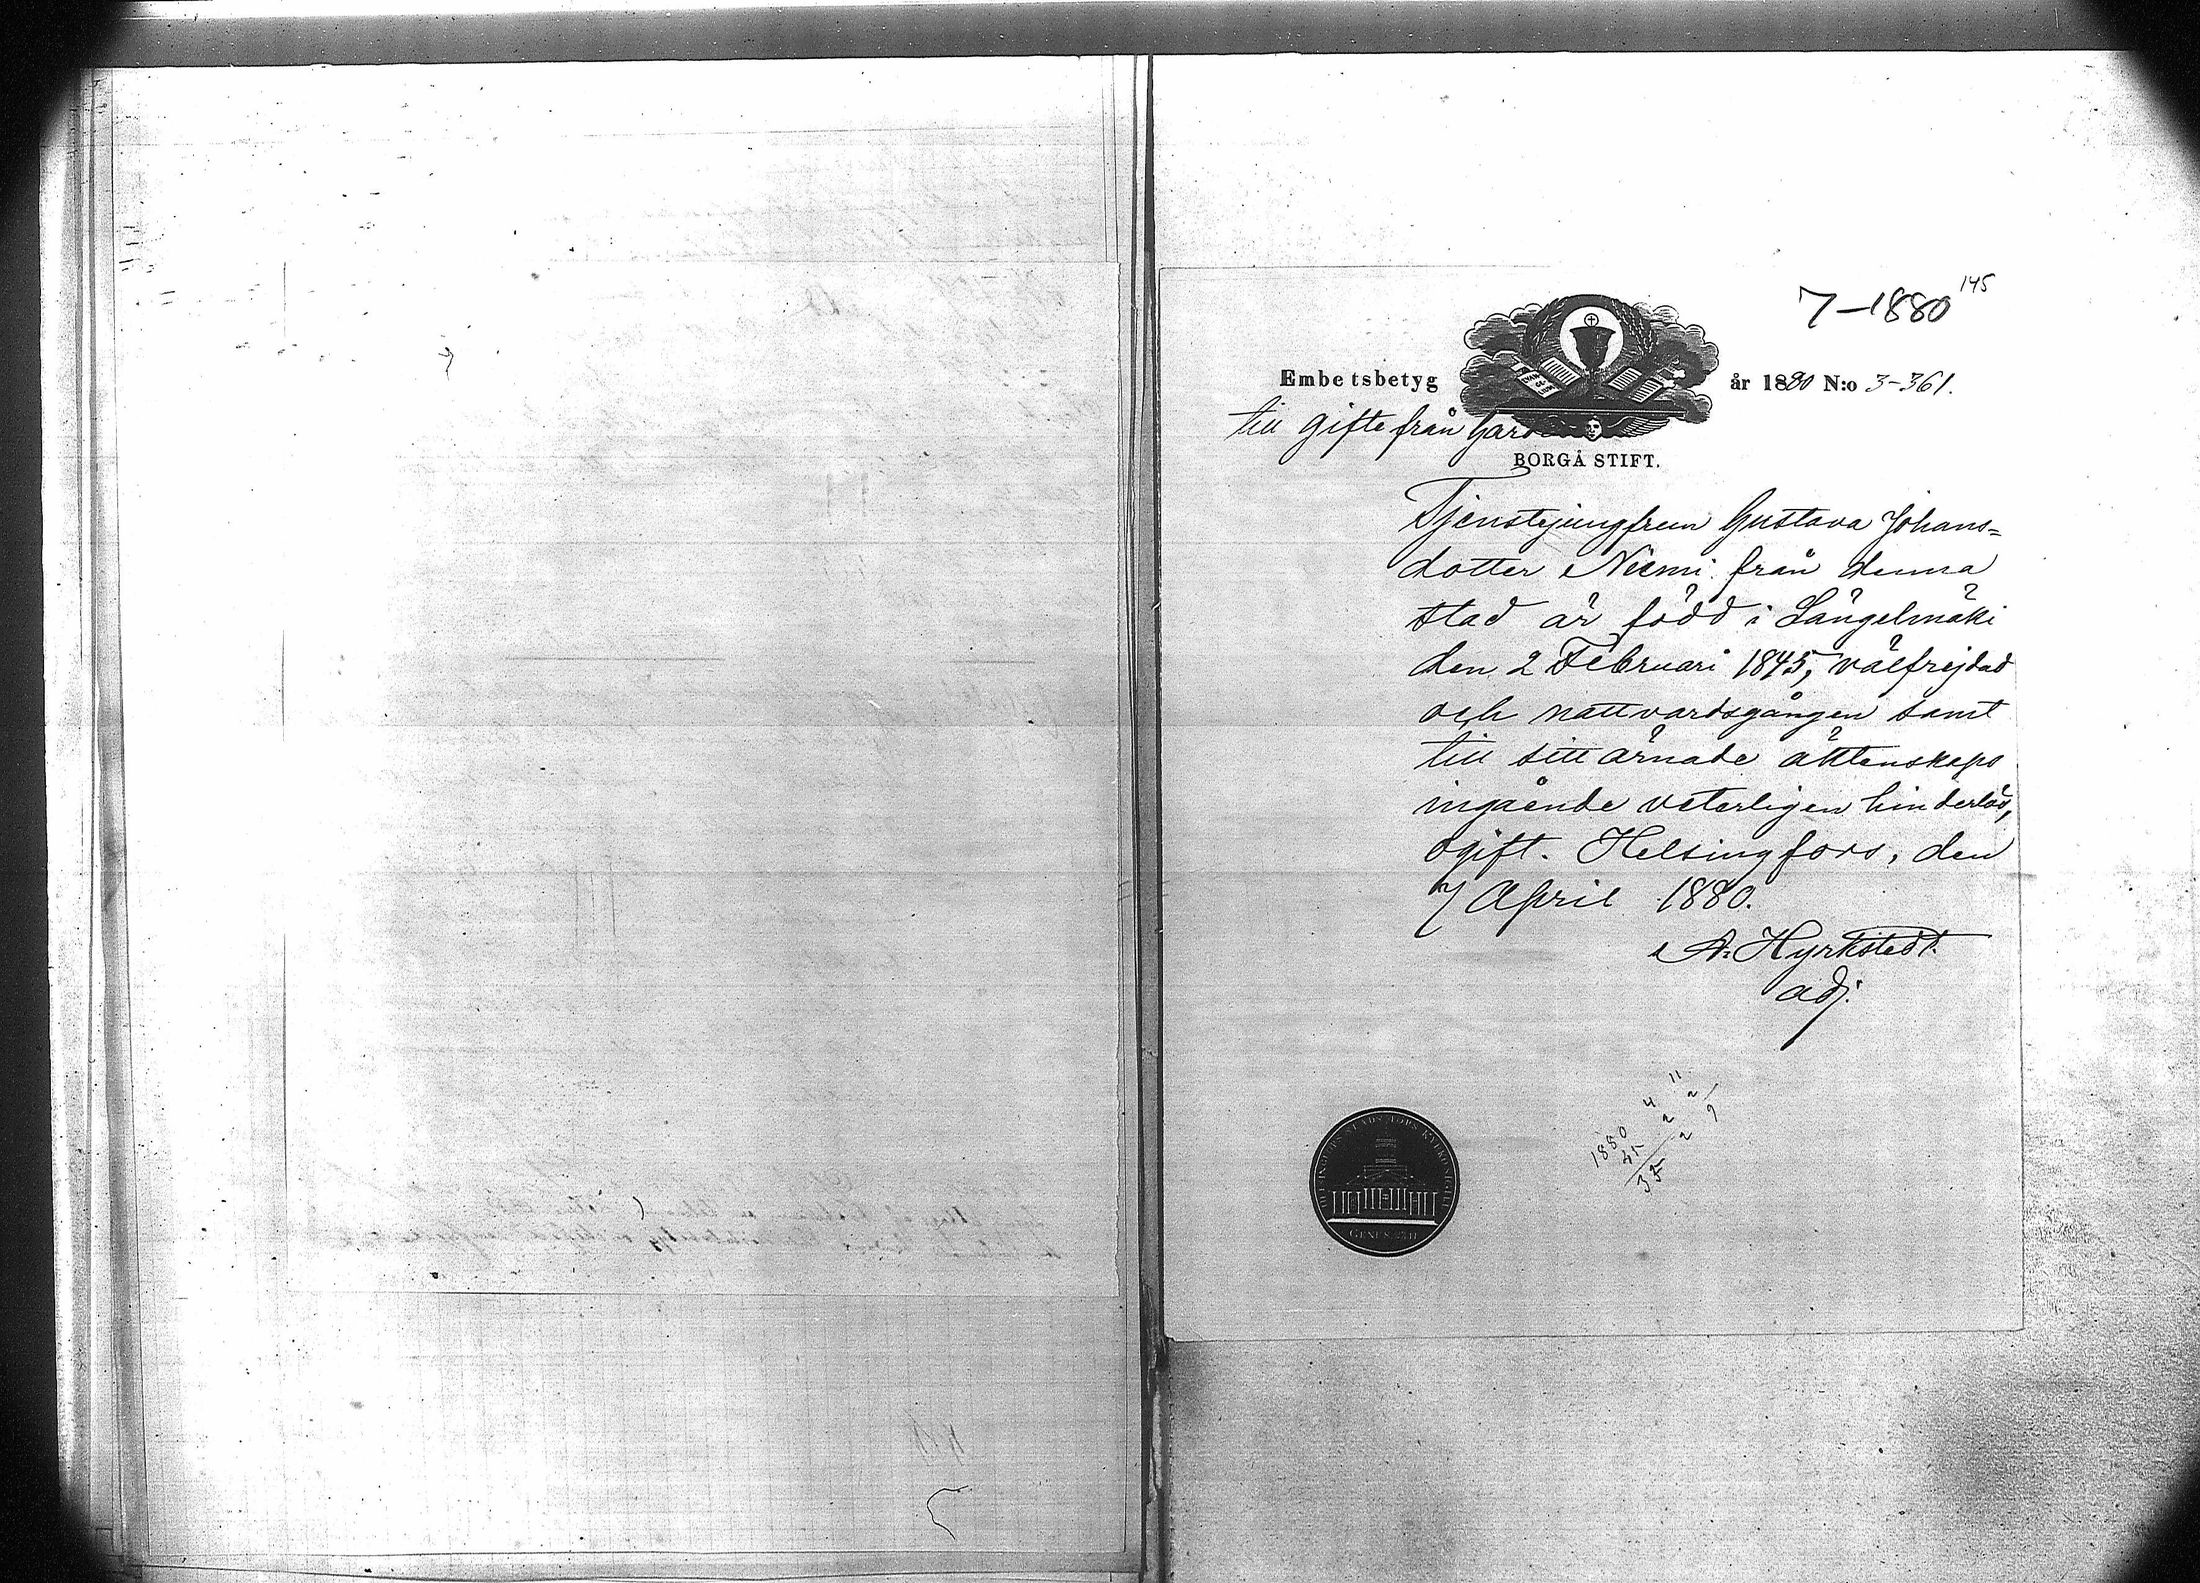 7-1880 145
Embetsbetyg år 1880 N:o 3-361.
till gifte från
BORGÅ STIFT.
Tjenstejungfrun Gustava Johans=
dotter Niemi från denna
stad är född i Längelmäki
den 2 Februari 1845, välfrejdad
och nattvardsgången samt
till sitt ärnade äktenskaps
ingående veterligen hinderlös,
ogift. Helsingfors, den
7 April 1880.
A. Hyrkstedt.
adj.
1880 4 11
45 2 2
35 2 9
GENES.